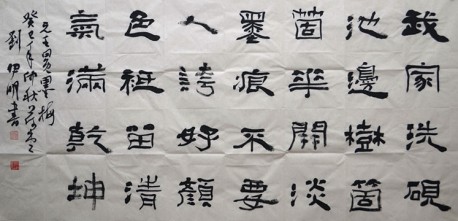 我家洗硯
池邊樹箇
箇華開淡
墨痕不要
人誇好顏
色祗留清
氣滿乾坤
元王冕墨梅
癸巳年仲秋
劉伊明書